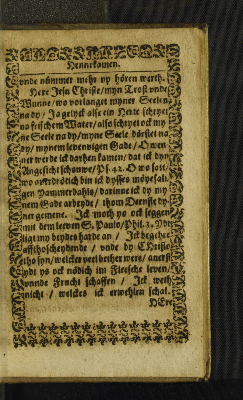 Hennekamen.
vnde nümmer mehr vp hören werth.
Here Jesu Christe / myn Trost vnde
Wunne / wo vorlanget myner Seelen
na dy / Ja gelyck alse ein Herte schryet
na frischem Water / also schryet ock my
ne Seele na dy / myne Seele dörstet na
dy / mynem levendigen Gade / O wen
ner werde ick darhen kamen / dat ick dyn
Angesicht schouwe / Ps. 42. O wo sött /
wo bin ick dysses
gen Jammerdahls / darinne ick dy my
nem Gade arbeyde / thom Denste dy
ner gemene. Ick moth yo ock seggen
mit dem leeven S. Paulo / Phil. 1. Ydt
ligt my beydes harde an / Ick begehre
affthoscheydende / vnde by Christo
tho syn / welcker veel bether were / averst
ydt ys ock nödich im Fleesche leven /
vnnde Frucht schaffen / Ick weth
nicht / welckes ick erwehlen schal.
HErr